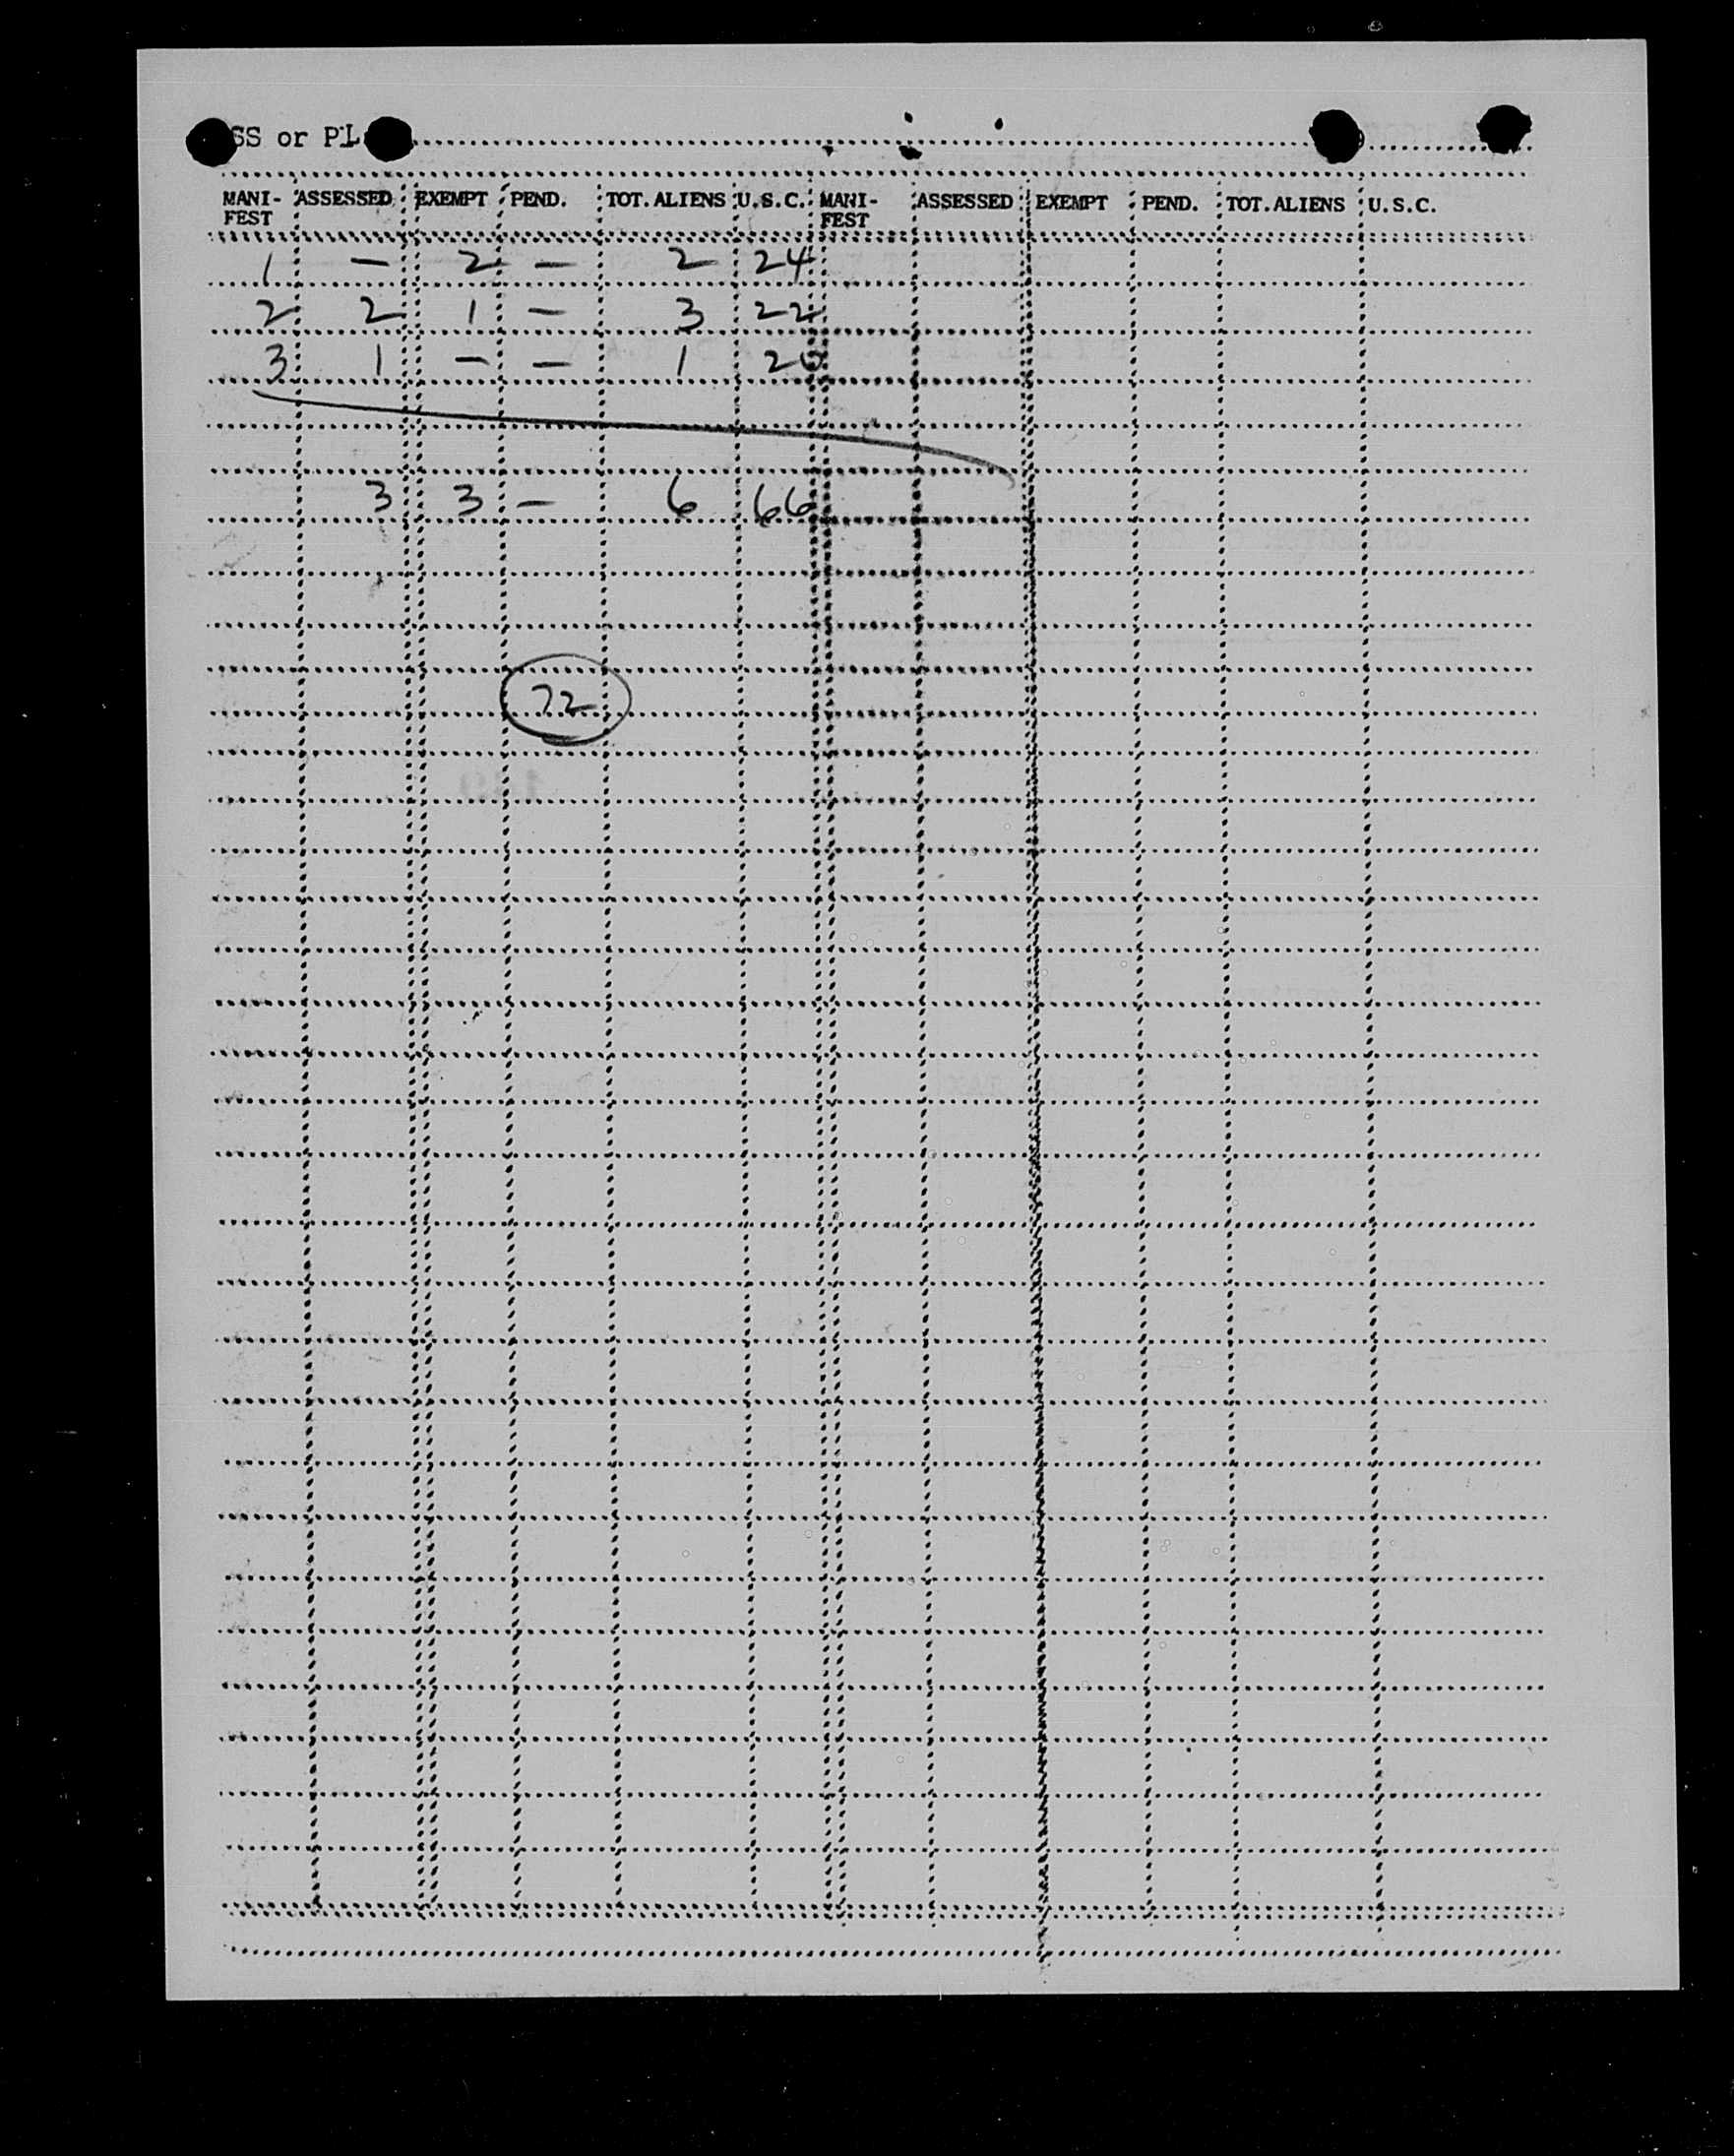 SS or PL
MANI- ASSESSED EXEMPT PEND. TOT. ALIENS U.S.C. MANI- ASSESSED EXEMPT PEND. TOT. ALIENS U.S.C.
FEST FEST
1 — 2 — 2 24
2 2 1 — 3 22
3 1 — — 1 20
3 3 — 6 66
72